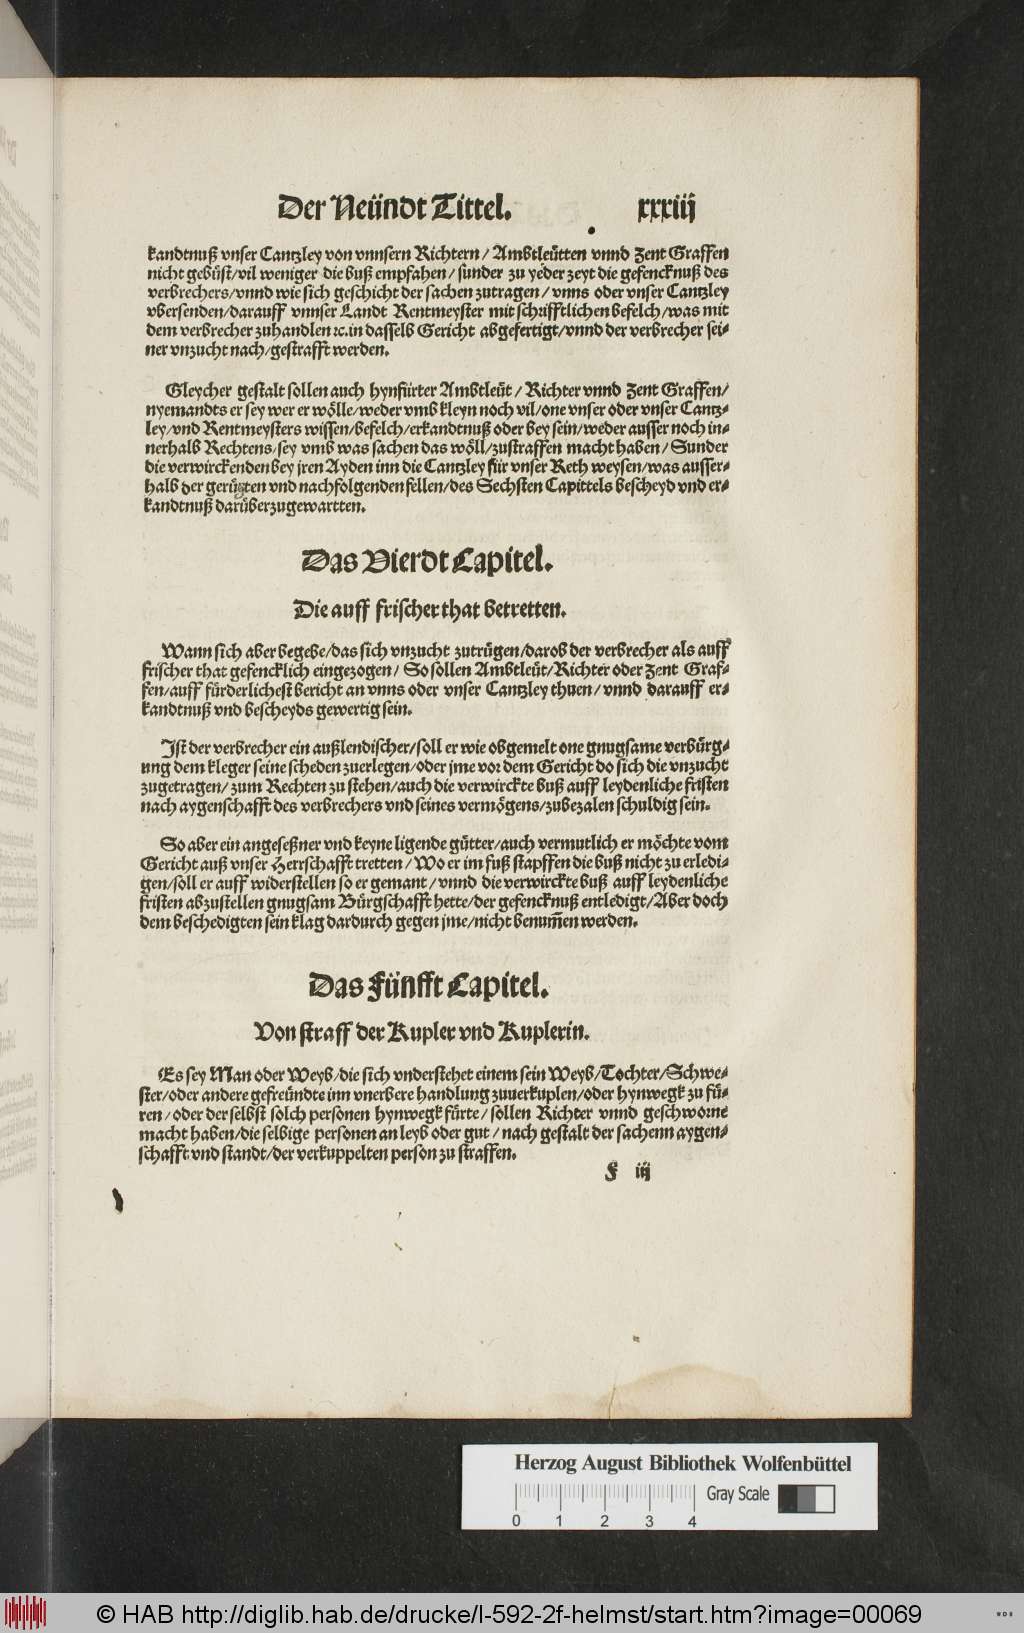 Der Neündt Tittel. xxxiij
kandtnuß vnser Cantzley von vnnsern Richtern / Ambtleütten vnnd Zent Graffen
nicht gebüst/vil weniger die buß empfahen / sunder zu yeder zeyt die gefencknuß des
verbrechers/vnnd wie sich geschicht der sachen zutragen / vnns oder vnser Cantzley
vbersenden/darauff vnnser Landt Rentmeyster mit schrifftlichen befelch/was mit
dem verbrecher zuhandlen ꝛc.in dasselb Gericht abgefertigt/vnnd der verbrecher sei-
ner vnzucht nach/gestrafft werden.
Gleycher gestalt sollen auch hynfürter Ambtleüt / Richter vnnd Zent Graffen/
nyemandts er sey wer er wölle/weder vmb kleyn noch vil/one vnser oder vnser Cantz-
ley/vnd Rentmeysters wissen/befelch/erkandtnuß oder bey sein/weder ausser noch in-
nerhalb Rechtens/sey vmb was sachen das wöll/zustraffen macht haben / Sunder
die verwirckenden bey jren Ayden inn die Cantzley für vnser Reth weysen/was ausser-
halb der gerügten vnd nachfolgenden fellen/des Sechsten Capittels bescheyd vnd er-
kandtnuß darüberzugewartten.
Das Vierdt Capitel.
Die auff frischer that betretten.
Wann sich aber begebe/das sich vnzucht zutrügen/darob der verbrecher als auff
frischer that gefencklich eingezogen / So sollen Ambtleüt/Richter oder Zent Graf-
fen/auff fürderlichest bericht an vnns oder vnser Cantzley thuen / vnnd darauff er-
kandtnuß vnd bescheyds gewertig sein.
Ist der verbrecher ein außlendischer/soll er wie obgemelt one gnugsame verbürg-
ung dem kleger seine scheden zuerlegen/oder jme vor dem Gericht do sich die vnzucht
zugetragen/zum Rechten zu stehen/auch die verwirckte buß auff leydenliche fristen
nach aygenschafft des verbrechers vnd seines vermögens/zubezalen schuldig sein.
So aber ein angeseßner vnd keyne ligende gütter/auch vermutlich er möchte vom
Gericht auß vnser Herrschafft tretten / Wo er im fuß stapffen die buß nicht zu erledi-
gen/soll er auff widerstellen so er gemant / vnnd die verwirckte buß auff leydenliche
fristen abzustellen gnugsam Bürgschafft hette/der gefencknuß entledigt/Aber doch
dem beschedigten sein klag dardurch gegen jme/nicht benum̄en werden.
Das Fünfft Capitel.
Von straff der Kupler vnd Kuplerin.
Es sey Man oder Weyb/die sich vnderstehet einem sein Weyb/Tochter/Schwe-
ster/oder andere gefreündte inn vnerbere handlung zuuerkuplen/oder hynwegk zu fü-
ren / oder der selbst solch personen hynwegk fürte / sollen Richter vnnd geschworne
macht haben/die selbige personen an leyb oder gut / nach gestalt der sachenn aygen-
schafft vnd standt/der verkuppelten person zu straffen.
F iij
Herzog August Bibliothek Wolfenbüttel
Gray Scale
0 1 2 3 4
© HAB http://diglib.hab.de/drucke/l-592-2f-helmst/start.htm?image=00069